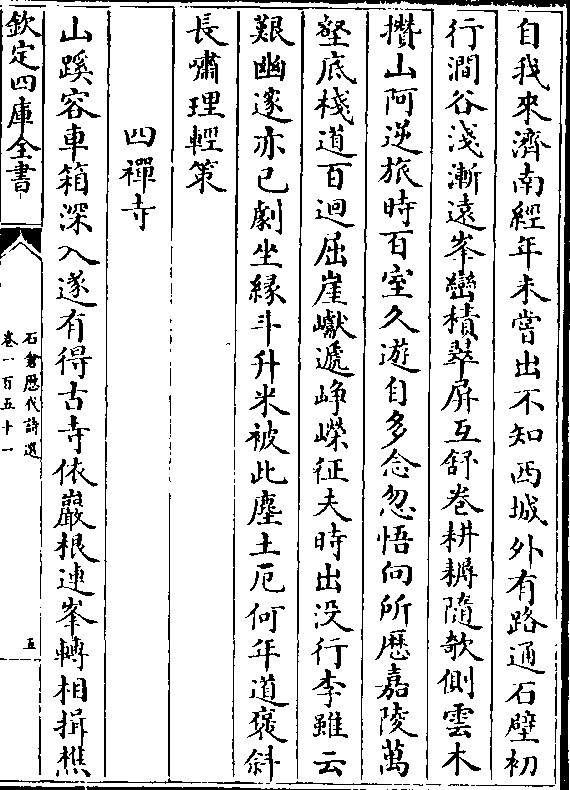 自我來濟南經年未嘗出不知西城外有路通石壁初
行澗谷淺漸遠峯巒積翠屏互舒卷耕耨隨欹側雲木
攢山阿逆旅時百室久遊自多念忽悟向所歴嘉陵萬
壑底棧道百迴屈崖巘遞崢嶸征夫時出没行李雖云
艱幽邃亦已劇坐緣斗升米被此塵土厄何年道褒斜
長嘯理輕策
四禪寺
山蹊容車箱深入遂有得古寺依巖根連峯轉相揖樵
欽定四庫全書
石倉歴代詩選
卷一百五十一
五